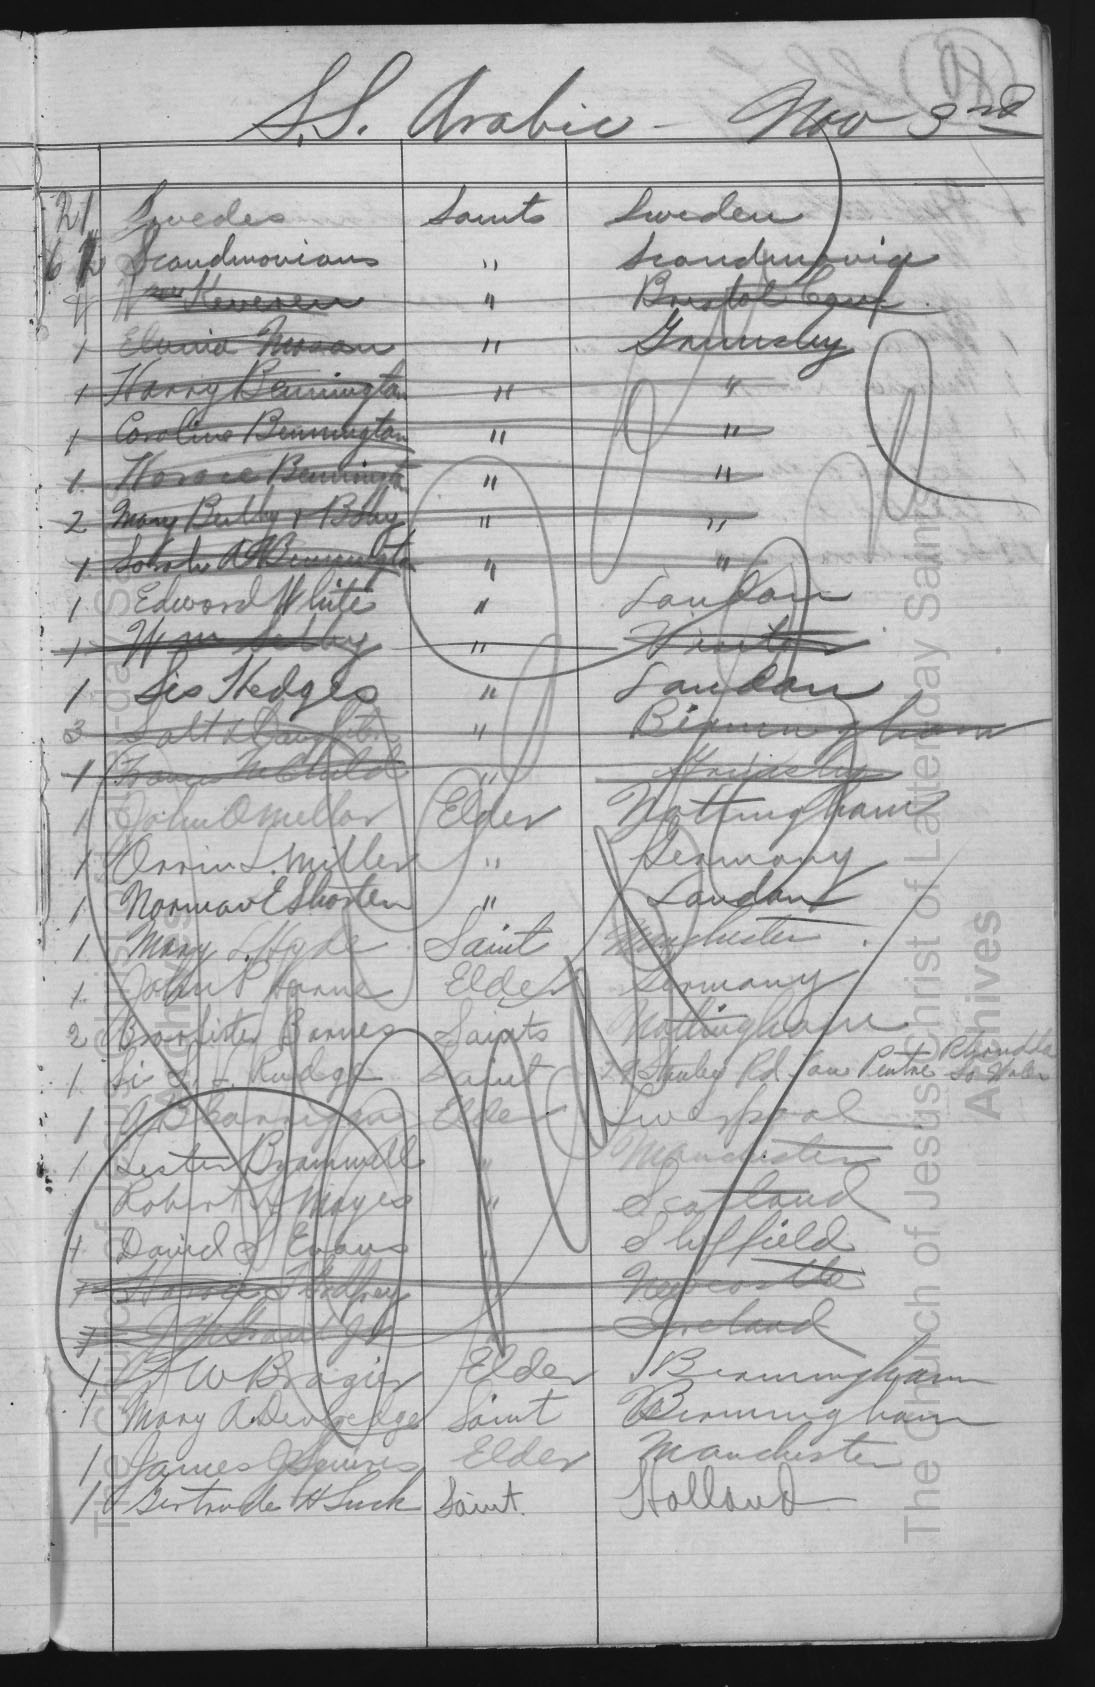 S.S. Arabic - Nov 3rd
21 Swedes Saints Sweden
62 Scandinavians " Scandinavia
4 Wm Keveren " Bristol Conf
1 " Grimsby
1 Harry Bennington " "
1 Caroline Bennington " "
1 Horace Bennington " "
2 Mary & Baby " "
1 Sarah A Bennington " "
1 Edward White " London
1 Wm Selby "
1 Sis Hedges " London
3 Salt & Daughter " Birmingham
1 " Grimsby
1 John O Mellor Elder Nottingham
1 Orrin L. Miller " Germany
1 Norman E Shorten " London
1 Mary L. Hyde Saint Manchester
1 John P Horne Elder Germany
2 Bro & Sister Barnes Saints Nottingham
1 Rudge Saint 29 Stanley Rd Pentre Rhondda So Wales
1 Elder Liverpool
1 Lester Bramwell " Manchester
Robert H Mayes " Scotland
1 David S Evans " Sheffield
1 Godfrey " Newcastle
1 Ireland
1 W Brazier Elder Birmingham
1 Mary A Saint Birmingham
1 James J Squires Elder Manchester
1 Gertrude H Luck Saint. Holland
The Church of Jesus Christ of Latter-day Saints
Archives